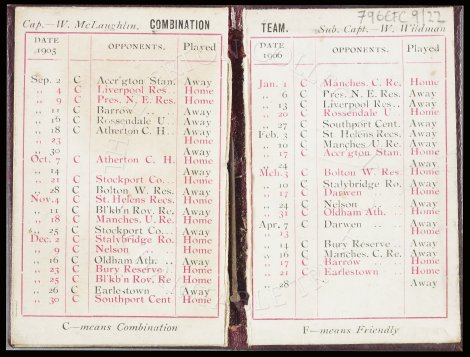 Cap.—W. McLaughlin. COMBINATION
DATE 1905 OPPONENTS. Played
Sep. 2 C Accr'gton Stan. Away
„ 4 C Liverpool Res... Home
„ 9 C Pres. N. E. Res. Home
„ 11 C Barrow .. .. Away
„ 16 C Rossendale U... Away
„ 18 C Atherton C. H. Away
„ 23 Home
„ 30 Away
Oct. 7 C Atherton C. H. Home
„ 14 Away
„ 21 C Stockport Co... Home
„ 28 C Bolton W. Res. Away
Nov. 4 C St. Helens Recs. Home
„ 11 C Bl'kb'n Rov. Re. Away
„ 18 C Manches. U. Re. Home
„ 25 C Stockport Co... Away
Dec. 2 C Stalybridge Ro. Home
„ 9 C Nelson .. Home
„ 16 C Oldham Ath. .. Away
„ 23 C Bury Reserve.. Home
„ 25 C Bl'kb'n Rov. Re Home
„ 26 C Earlestown .. Away
„ 30 C Southport Cent Home
C—means Combination
796EFC 9/22
TEAM. Sub. Capt.—W. Wildman
DATE 1906 OPPONENTS. Played
Jan. 1 C Manches. C. Re. Home
„ 6 C Pres. N. E. Res. Away
„ 13 C Liverpool Res.. Away
„ 20 C Rossendale U.. Home
„ 27 C Southport Cent. Away
Feb. 3 C St. Helens Recs. Away
„ 10 C Manches. U. Re. Away
„ 17 C Accr'gton. Stan. Home
„ 24 Away
Mch. 3 C Bolton W. Res. Home
„ 10 C Stalybridge Ro. Away
„ 17 C Darwen .. Home
„ 24 C Nelson .. Away
„ 31 C Oldham Ath. .. Home
Apr. 7 C Darwen .. Away
„ 13 Home
„ 14 C Bury Reserve.. Away
„ 16 C Manches. C. Re. Away
„ 17 C Barrow .. Home
„ 21 C Earlestown .. Home
„ 28 Away
F—means Friendly